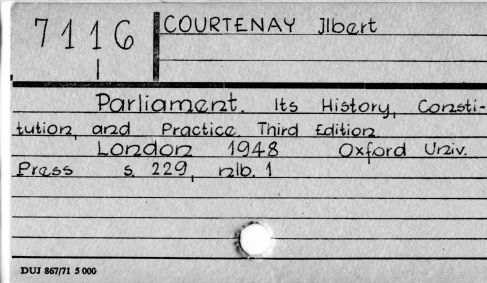 7116
COURTENAY Ilbert
Parliament. Its History, Consti-
tution, and Practice. Third Edition
London 1948 Oxford Univ.
Press s. 229, nlb. 1
DUJ 867/71 5 000